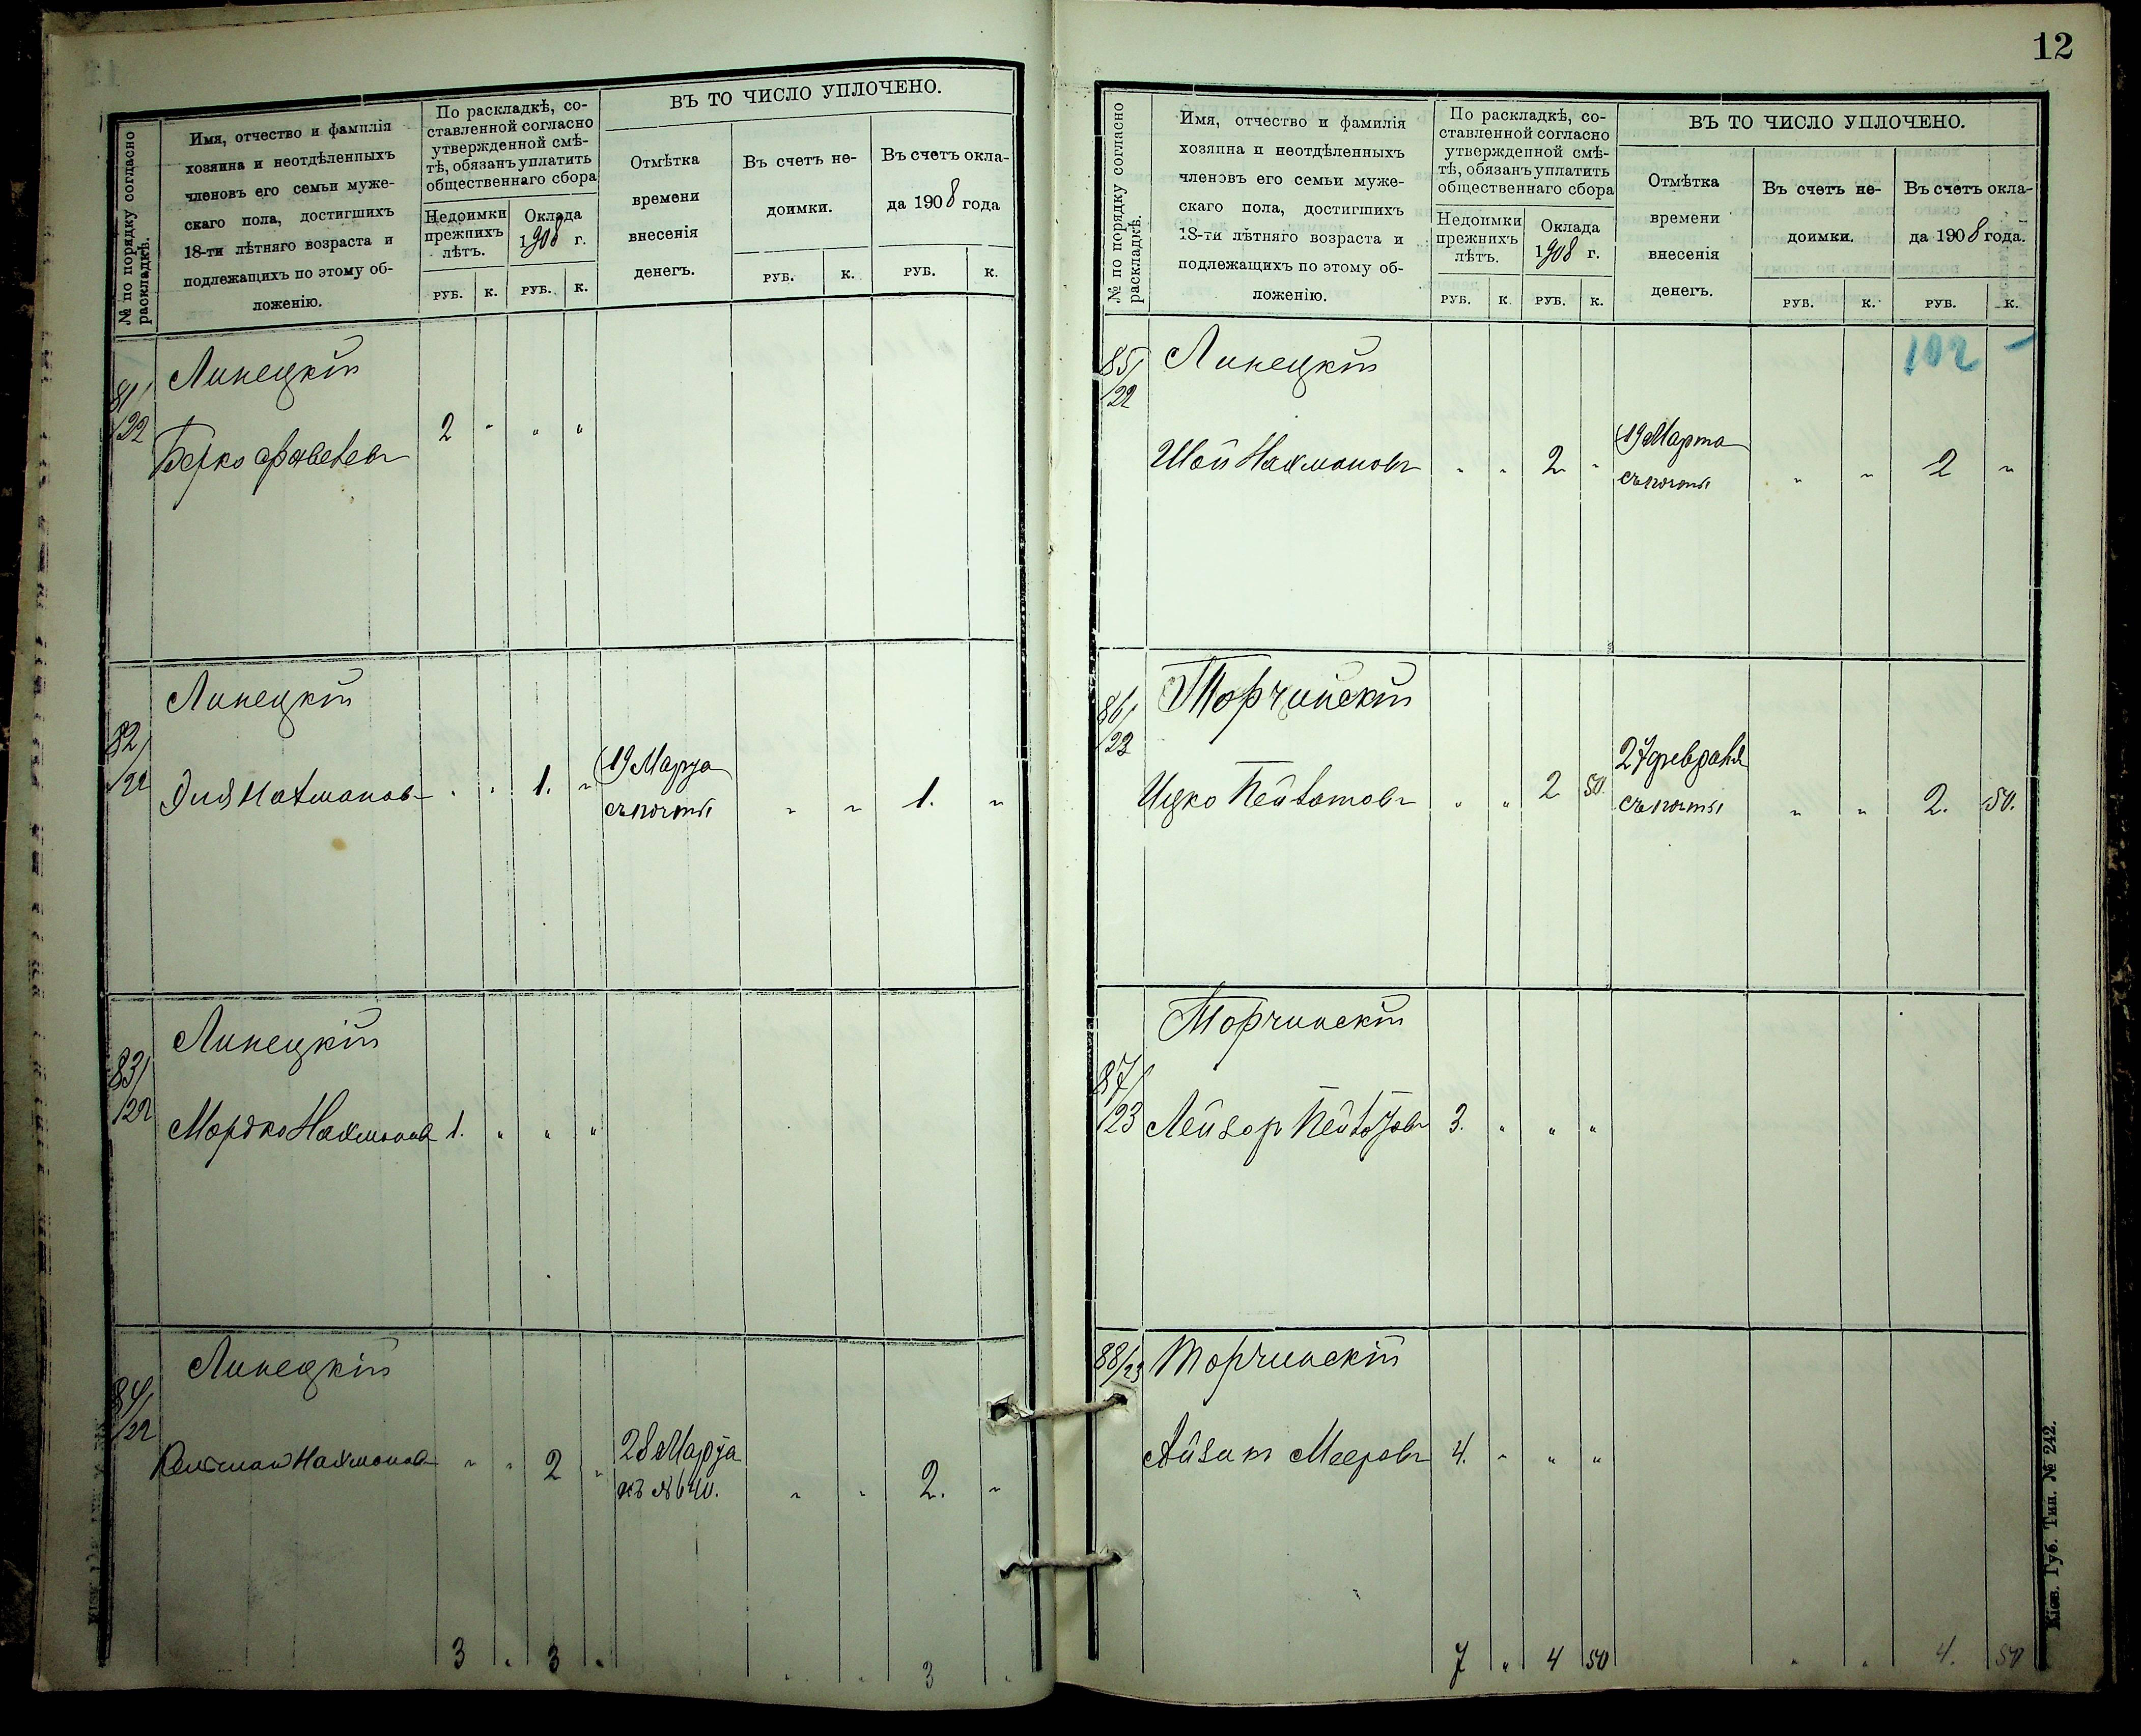 12
№ по порядку согласно раскладкѣ.
Имя, отчество и фамилія
хозяина и неотдѣленныхъ
членовъ его семьи муже-
скаго пола, достигшихъ
18-ти лѣтняго возраста и
подлежащихъ по этому об-
ложенію.
По раскладкѣ, со-
ставленной согласно
утвержденной смѣ-
тѣ, обязанъ уплатить
общественнаго сбора
Недоимки
прежнихъ
лѣтъ.
Оклада
1908 г.
РУБ. К. РУБ. К.
ВЪ ТО ЧИСЛО УПЛОЧЕНО.
Отмѣтка
времени
внесенія
денегъ.
Въ счетъ не-
доимки.
РУБ. К.
Въ счетъ окла-
да 1908 года
РУБ. К.
81/22
Линецкій
Берко 2 " " "
82/22
Линецкій
Эля Нахманов " " 1. " 19 Марта " " 1. "
съ почты
83/22
Линецкій
Мордко Нахманов 1. " " "
84/22
Линецкій
Кельман Нахманов " " 2 " 28 Марта
къ № 640. " " 2. "
3 " 3 " " " 3 "
№ по порядку согласно раскладкѣ.
Имя, отчество и фамилія
хозяина и неотдѣленныхъ
членовъ его семьи муже-
скаго пола, достигшихъ
18-ти лѣтняго возраста и
подлежащихъ по этому об-
ложенію.
По раскладкѣ, со-
ставленной согласно
утвержденной смѣ-
тѣ, обязанъ уплатить
общественнаго сбора
Недоимки
прежнихъ
лѣтъ.
Оклада
1908 г.
РУБ. К. РУБ. К.
ВЪ ТО ЧИСЛО УПЛОЧЕНО.
Отмѣтка
времени
внесенія
денегъ.
Въ счетъ не-
доимки.
РУБ. К.
Въ счетъ окла-
да 1908 года.
РУБ. К.
102 –
85/22
Линецкій
Шая Нахмановъ " " 2 " 19 Марта
съ почты " " 2 "
86/22
Торчинскій
Ицко " " 2 50 27 февраля
съ почты " " 2. 50.
87/23
Торчинскій
Лейзор 3. " " "
88/23
Торчинскій
Айзик Мееровъ 4. " " "
7 " 4 50 " " 4. 50
Кіев. Губ. Тип. № 242.